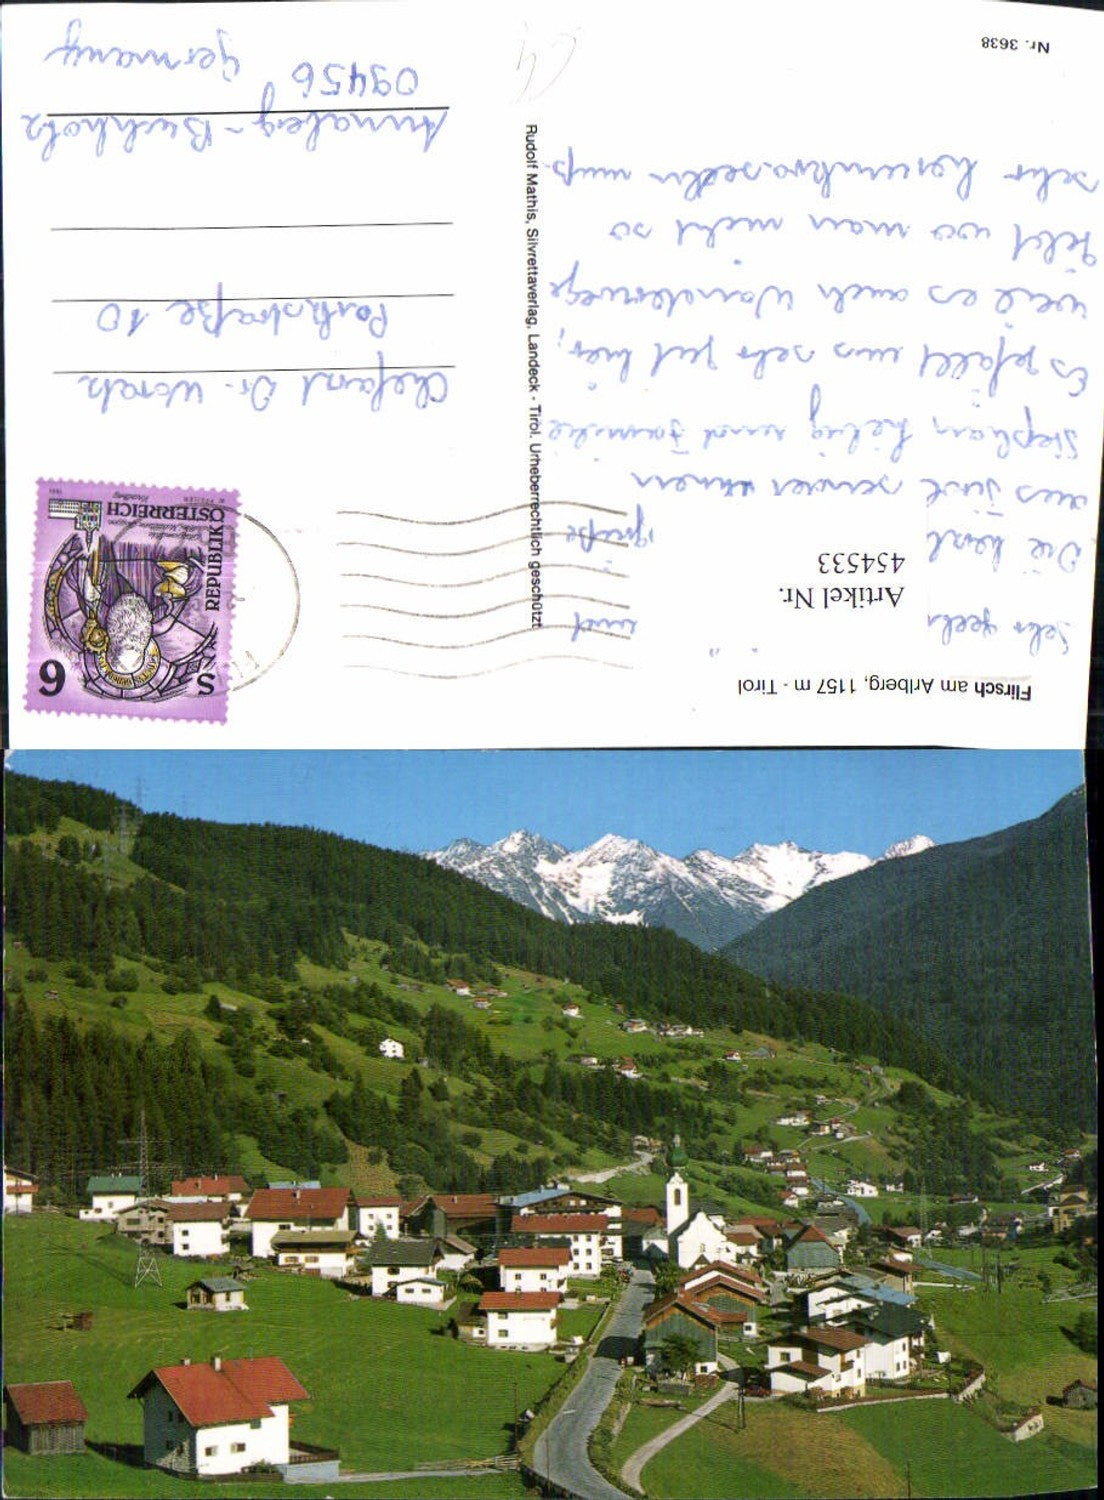 Flirsch am Arlberg, 1157 m - Tirol
Nr. 3638
Artikel Nr.
454533
Sehr geehr und
Die herzl Grüße
aus Tirol senden Ihnen
Stephan und Familie
Es gefällt uns sehr gut hier,
weil es auch Wanderwege
gibt wo man nicht so
sehr muß.
Rudolf Mathis, Silvrettaverlag, Landeck - Tirol. Urheberrechtlich geschützt
6 S
REPUBLIK
ÖSTERREICH
Chefarzt Dr. Worch
Parkstraße 10
Annaberg-Buchholz
09456
Germany